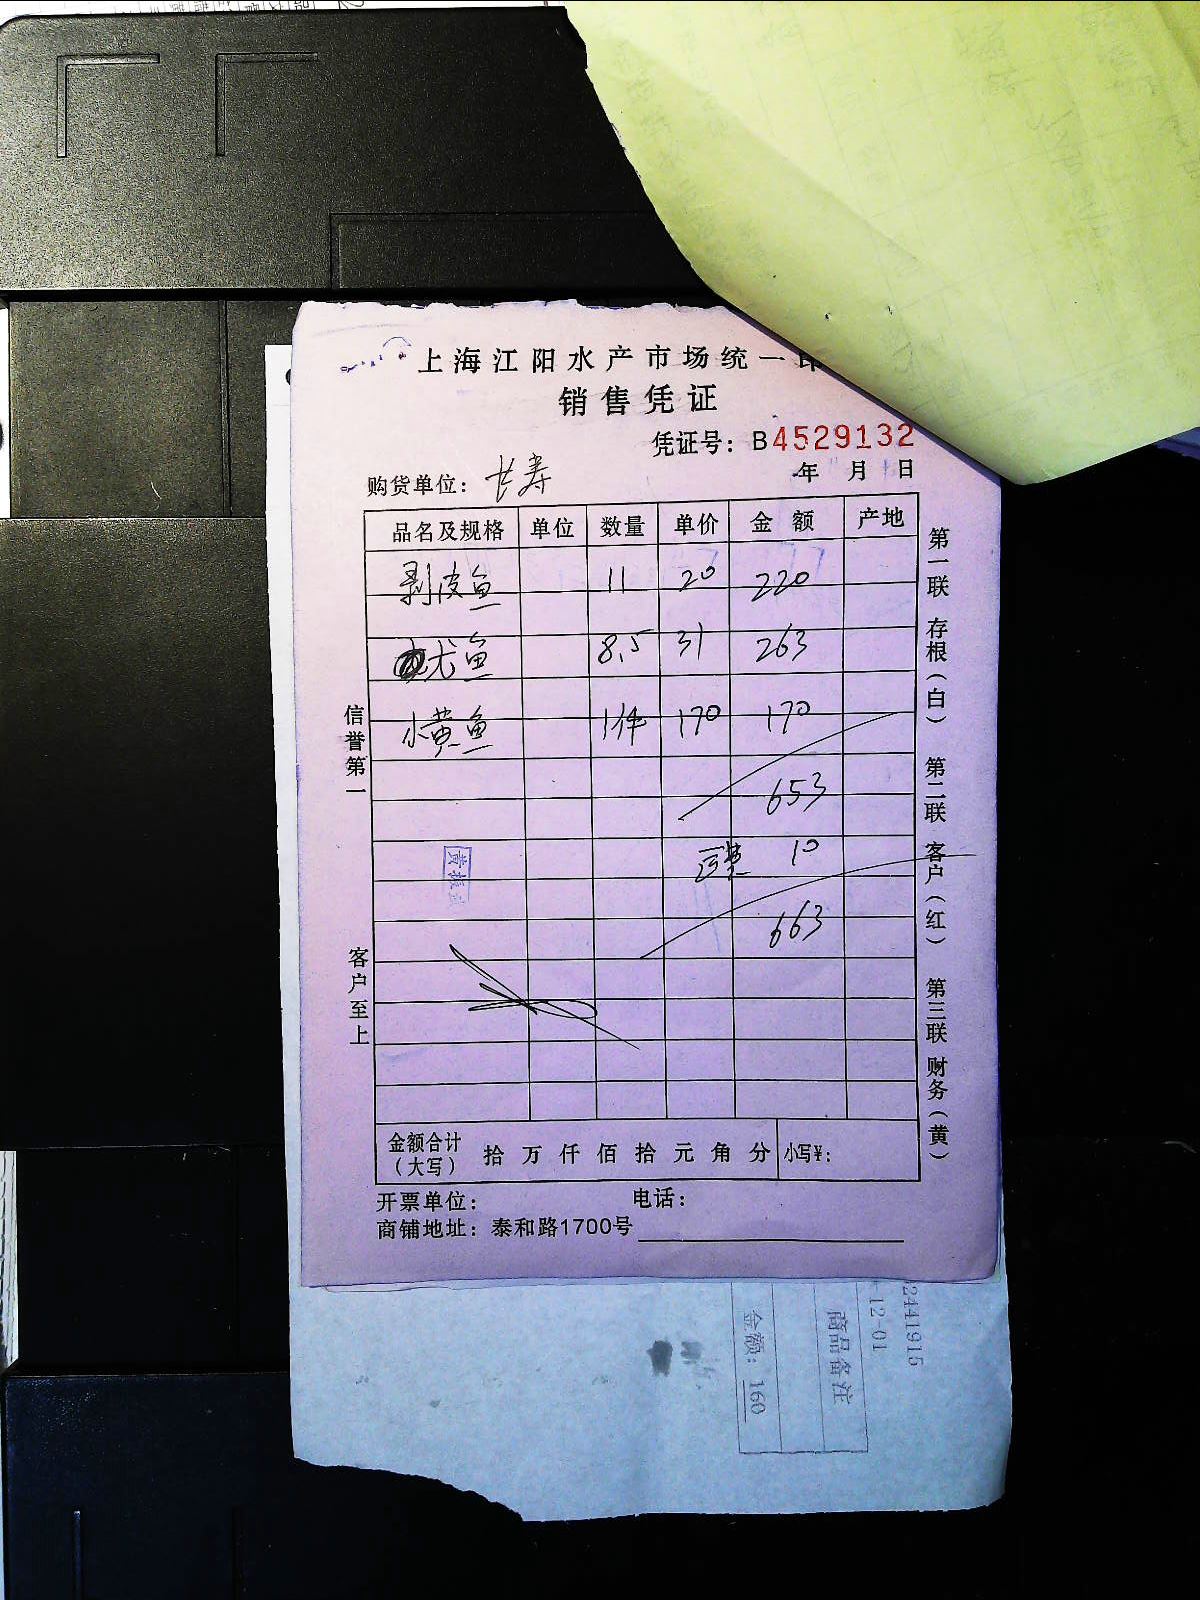 上海江阳水产市场统一印
销售凭证
凭证号：B4529132
购货单位：长寿 年 月 日
品名及规格 单位 数量 单价 金额 产地
剥皮鱼 11 20 220
尤鱼 8.5 31 263
小黄鱼 1件 170 170
653
10
663
金额合计（大写） 拾 万 仟 佰 拾 元 角 分 小写¥：
开票单位： 电话：
商铺地址：泰和路1700号
信誉第一
客户至上
第一联 存根（白） 第二联 客户（红） 第三联 财务（黄）
2441915
12-01
商品备注
金额：160